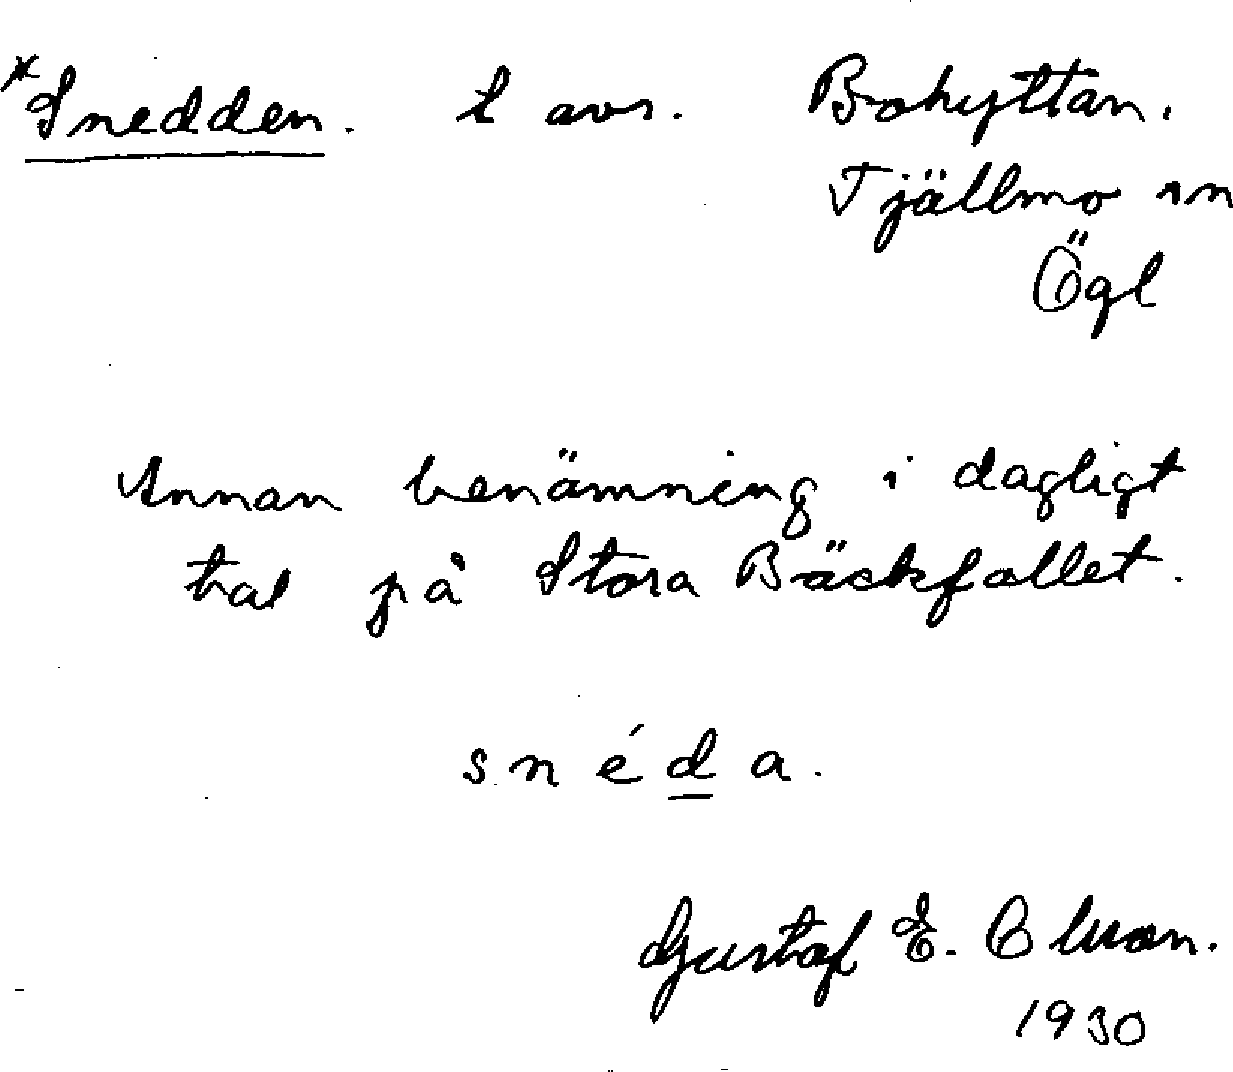 *Snedden. l avs. Bohyttan.
Tjällmo sn
Ögl
Annan benämning i dagligt
tal på Stora Bäckfallet.
s n é d a.
Gustaf E. Olsson.
1930